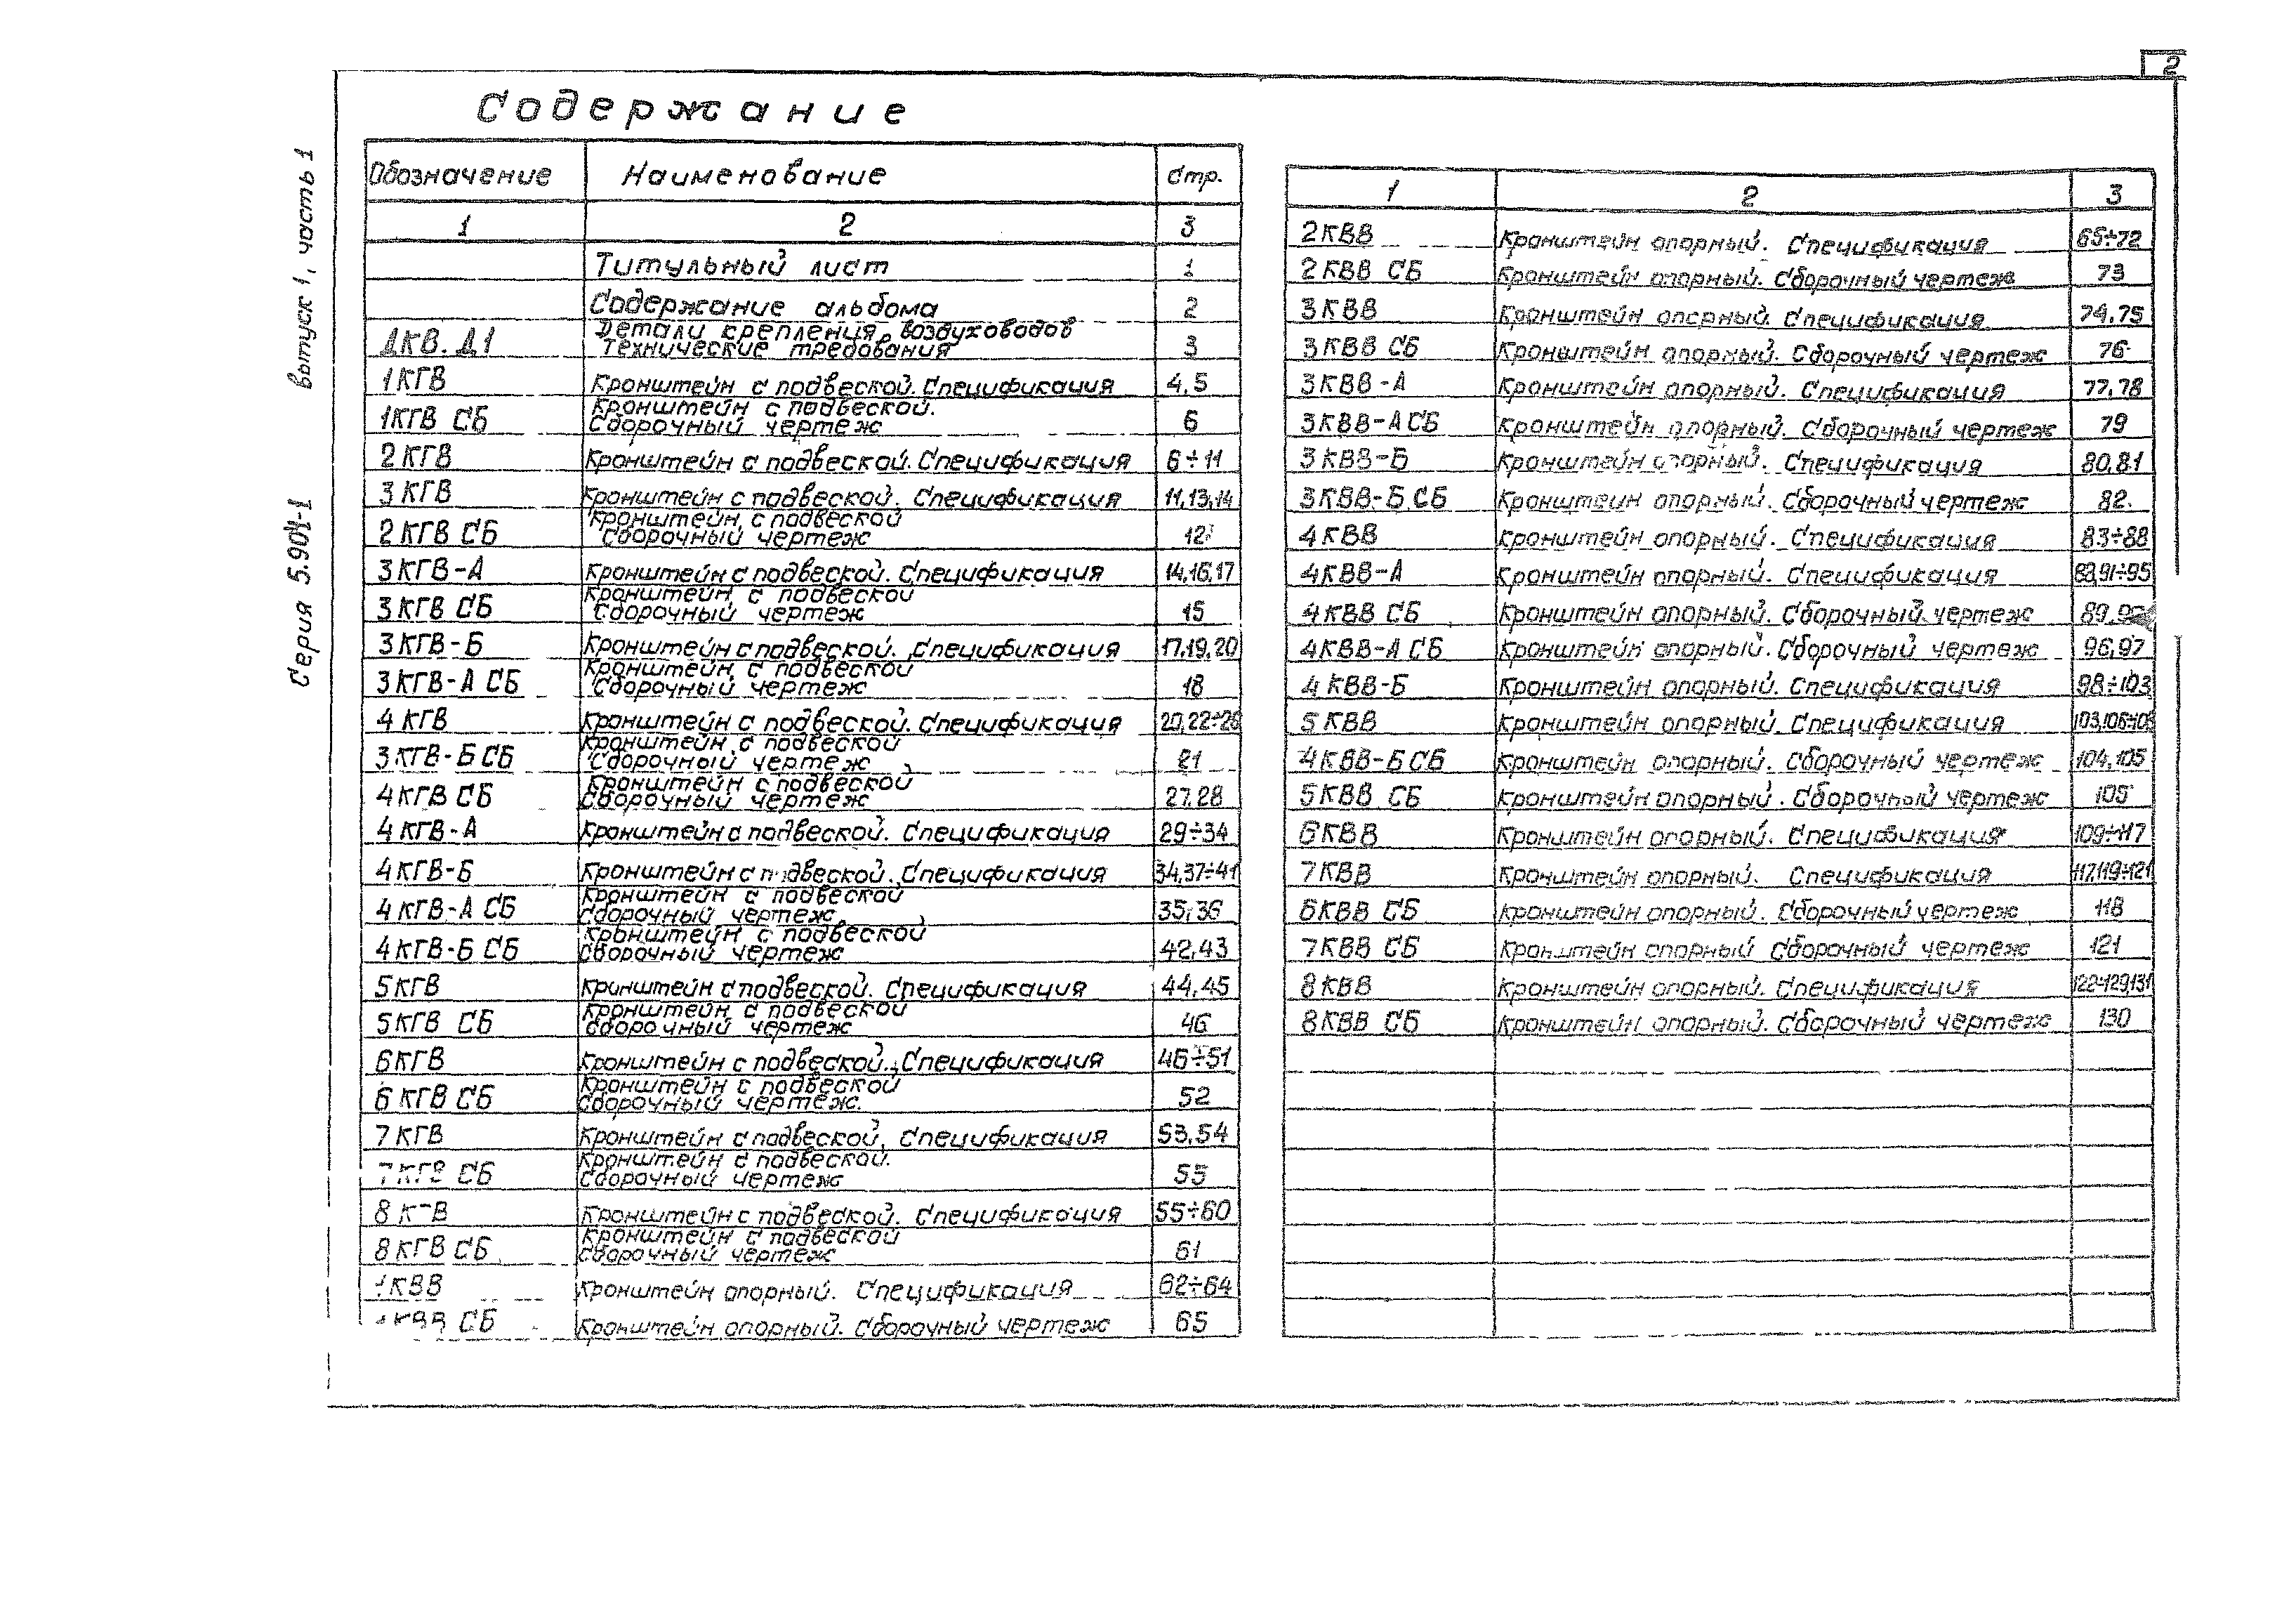 2
Содержание
Серия 5.904-1 выпуск 1, часть 1
Обозначение Наименование Стр.
1 2 3
Титульный лист 1
Содержание альбома 2
ДКВ.Д1 Детали крепления воздуховодов
технические требования 3
1КГВ Кронштейн с подвеской. Спецификация 4,5
1КГВ СБ Кронштейн с подвеской.
Сборочный чертеж 6
2КГВ Кронштейн с подвеской. Спецификация 6÷11
3КГВ Кронштейн с подвеской. Спецификация 11,13,14
2КГВ СБ Кронштейн с подвеской
Сборочный чертеж 12
3КГВ-А Кронштейн с подвеской. Спецификация 14,16,17
3КГВ СБ Кронштейн с подвеской
Сборочный чертеж 15
3КГВ-Б Кронштейн с подвеской. Спецификация 17,19,20
3КГВ-А СБ Кронштейн с подвеской
Сборочный чертеж 18
4КГВ Кронштейн с подвеской. Спецификация 20,22÷26
3КГВ-Б СБ Кронштейн с подвеской
Сборочный чертеж 21
4КГВ СБ Кронштейн с подвеской
Сборочный чертеж 27,28
4КГВ-А Кронштейн с подвеской. Спецификация 29÷34
4КГВ-Б Кронштейн с подвеской. Спецификация 34,37÷41
4КГВ-А СБ Кронштейн с подвеской
Сборочный чертеж 35,36
4КГВ-Б СБ Кронштейн с подвеской
Сборочный чертеж 42,43
5КГВ Кронштейн с подвеской. Спецификация 44,45
5КГВ СБ Кронштейн с подвеской
Сборочный чертеж 46
6КГВ Кронштейн с подвеской. Спецификация 46÷51
6КГВ СБ Кронштейн с подвеской
Сборочный чертеж. 52
7КГВ Кронштейн с подвеской. Спецификация 53,54
7КГВ СБ Кронштейн с подвеской.
Сборочный чертеж 55
8КГВ Кронштейн с подвеской. Спецификация 55÷60
8КГВ СБ Кронштейн с подвеской
Сборочный чертеж 61
1КВВ Кронштейн опорный. Спецификация 62÷64
1КВВ СБ Кронштейн опорный. Сборочный чертеж 65
1 2 3
2КВВ Кронштейн опорный. Спецификация 65÷72
2КВВ СБ Кронштейн опорный. Сборочный чертеж 73
3КВВ Кронштейн опорный. Спецификация 74,75
3КВВ СБ Кронштейн опорный. Сборочный чертеж 76
3КВВ-А Кронштейн опорный. Спецификация 77,78
3КВВ-А СБ Кронштейн опорный. Сборочный чертеж 79
3КВВ-Б Кронштейн опорный. Спецификация 80,81
3КВВ-Б СБ Кронштейн опорный. Сборочный чертеж 82
4КВВ Кронштейн опорный. Спецификация 83÷88
4КВВ-А Кронштейн опорный. Спецификация 88,91÷95
4КВВ СБ Кронштейн опорный. Сборочный чертеж 89,
4КВВ-А СБ Кронштейн опорный. Сборочный чертеж 96,97
4КВВ-Б Кронштейн опорный. Спецификация 98÷103
5КВВ Кронштейн опорный. Спецификация 103,106÷108
4КВВ-Б СБ Кронштейн опорный. Сборочный чертеж 104,105
5КВВ СБ Кронштейн опорный. Сборочный чертеж 105
6КВВ Кронштейн опорный. Спецификация 109÷117
7КВВ Кронштейн опорный. Спецификация 117,119÷121
6КВВ СБ Кронштейн опорный. Сборочный чертеж 118
7КВВ СБ Кронштейн опорный Сборочный чертеж 121
8КВВ Кронштейн опорный. Спецификация 122÷129,131
8КВВ СБ Кронштейн опорный. Сборочный чертеж 130